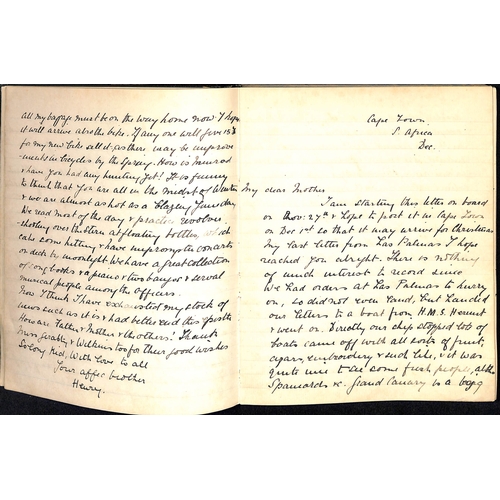 all my baggage must be on the way home now I hope
it will arrive also the bike. If any one will give £15
for my new bike sell it, as there may be improve
ments in bicycles by the Spring. How is
& have you had any hunting yet! It is funny
to think that you are all in the midst of Winter
& we are almost as hot as a blazing June day
We read most of the day & practice revolver
shooting over the stern at floating bottles, which
take some hitting & have impromptu concerts
on deck by moonlight. We have a great collection
of song books & a piano & two banjos & several
musical people among the officers.
Now I think I have exhausted my stock of
news such as it is & had better end this epistle
How are Father & Mother & the others? Thank
Miss & Wilkins too for their good wishes
So long Kid, With Love to all
Your affec brother
Henry.
Cape Town.
S. Africa
Dec.
My dear Mother
I am starting this letter on board
on Nov. 27th & hope to post it in Cape Town
on Dec 1st so that it may arrive for Christmas
My last letter from Las Palmas I hope
reached you alright. There is nothing
of much interest to record since
We had orders at Las Palmas to hurry
on, so did not even land, but handed
our letters to a boat from H.M.S. Hermes
& went on. Directly our ship stopped lots of
boats came off with all sorts of fruit,
cigars, embroidery & such like, & it was
quite nice to see some fresh people, altho
Spaniards &c. Grand Canary is a